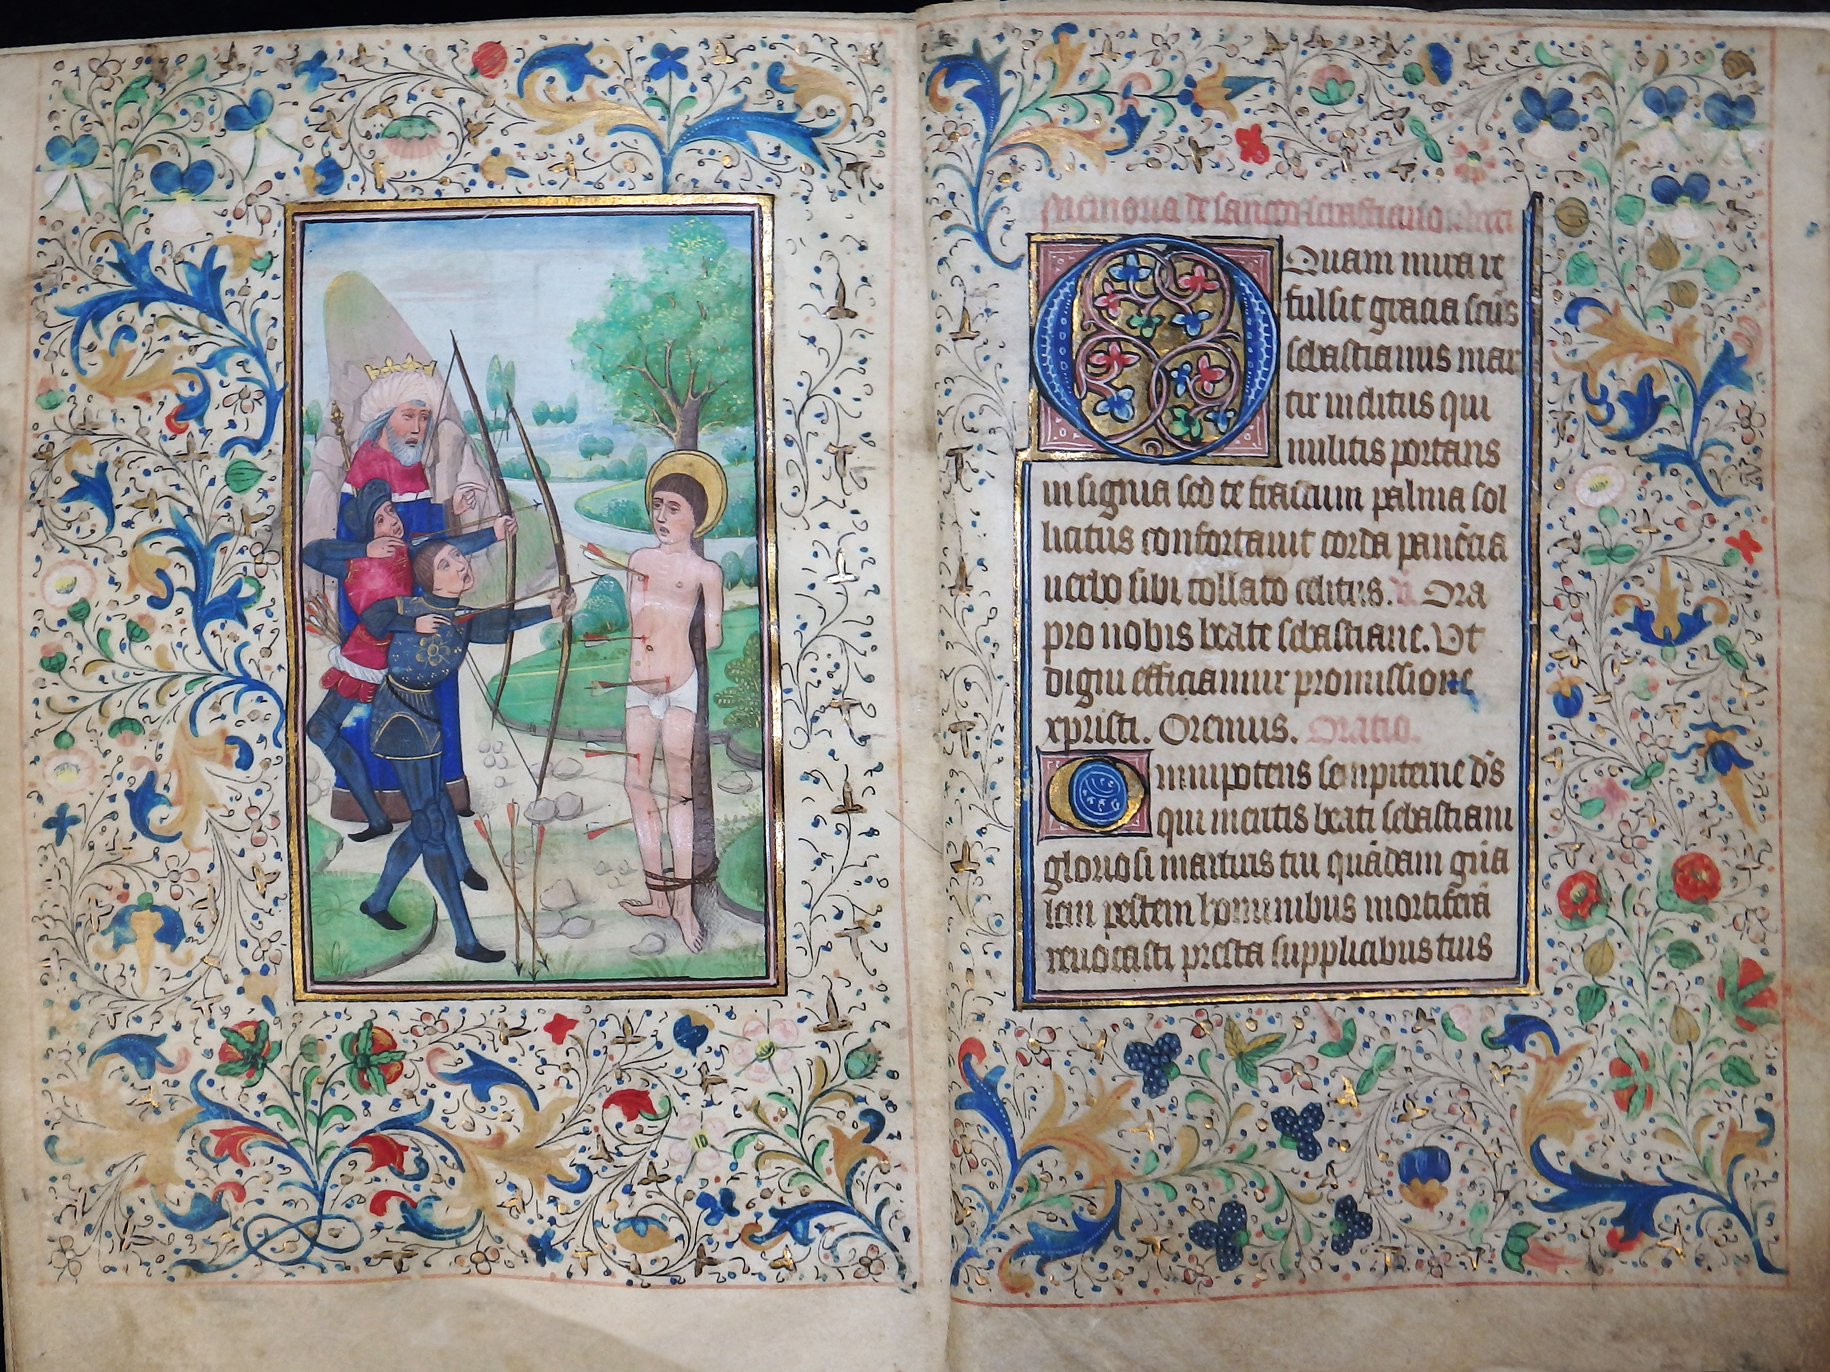 de sancto sebastiano
Quam mira re
fulsit gracia scūs
sebastianus mar
tir inclitus qui
militis portans
insignia sed te fratrum palma sol
licitus confortauit corda pauēcia
uerbo sibi collato celitus. Ora
pro nobis beate sebastiane. Vt
digni efficiamur promissione
xpristi. Oremus. Oratio.
Omnipotens sempiterne d̄s
qui meritis beati sebastiani
gloriosi martiris tui quādam gn̄a
lem pestem hominibus mortiferā
reuocasti presta supplicibus tuis